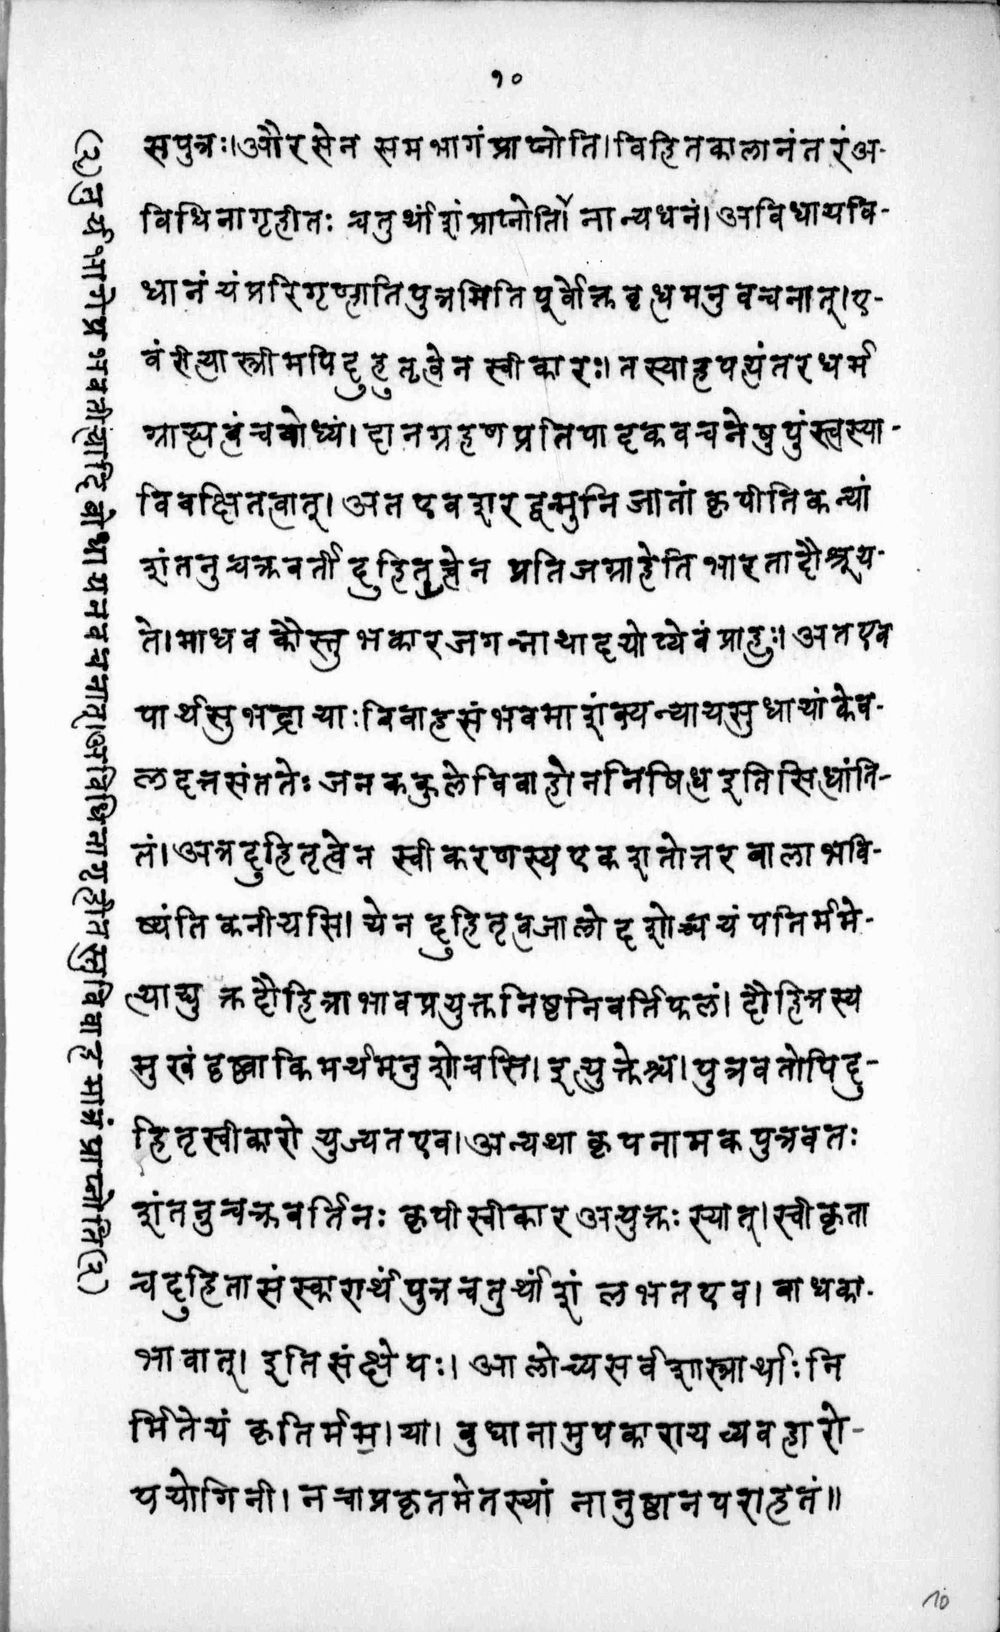 १०
सपुत्रः।औरसेन समभागंप्राप्नोति।विहितकालानंतरंअ-
विधिनागृहीतः चतुर्थांशंप्राप्नोति नान्यधनं।अविधायवि-
धानं यंपरिगृण्हातिपुत्रमितिपूर्वोक्तवृत्धमनुवचनात्।ए-
वंरीत्यास्त्रीमपिदुहुतृत्वेन स्वीकारः।तस्याहृपत्यंतरधर्म
ग्राह्यत्वंचबोध्यं।दानग्रहणप्रतिपादकवचनेषुपुंस्त्वस्या-
विवक्षितत्वात्।अतएवशरद्वन्मुनिजातां कृपीतिकन्यां
शंतनुचक्रवर्ती दुहितृत्वेन प्रतिजग्राहेतिभारतादौश्रूय-
ते।माधवकौस्तुभकारजगन्नाथादयोप्येवंप्राहुः।अतएव
पार्थसुभद्रायाःविवाहसंभवमाशंक्यन्यायसुधायांकेव-
लदत्तसंततेः जनककुलेविवाहोननिषिध इतिसिधांति-
तं।अत्रदुहितृत्वेन स्वीकरणस्यएकशतोत्तरबालाभवि-
ष्यंतिकनीयसि।येनदुहितृत्वजालोदशोच्चयंपतिर्ममे-
त्याद्युक्तदौहित्राभावप्रयुक्तनिष्ठनिवर्तिफलं।दौहित्रस्य
मुखंदृष्ट्वाकिमर्थमनुशोचसि।इत्युक्तेश्च।पुत्रवतोपिदु-
हितृस्वीकारो युज्यतएव।अन्यथाकृपनामकपुत्रवतः
शंतनुचक्रवर्तिनः कृपीस्वीकारअयुक्तःस्यात्।स्वीकृता
चदुहितासंस्कारार्थंपुत्रचतुर्थांशं लभतएव।बाधका-
भावात्।इतिसंक्षेपः।आलोच्यसर्वशास्त्रार्थाःनि
र्मितेयं कृतिर्मम।या।बुधानामुपकारायव्यवहारो-
पयोगिनी।नचाप्रकृतमेतस्यां नानुष्ठानपराहतं॥
(२)तुर्यभागेप्रभवतीत्यादिबोधायनवचनात्।अविधिनागृहीतस्तुविवाहमात्रंप्राप्नोति(२)
10